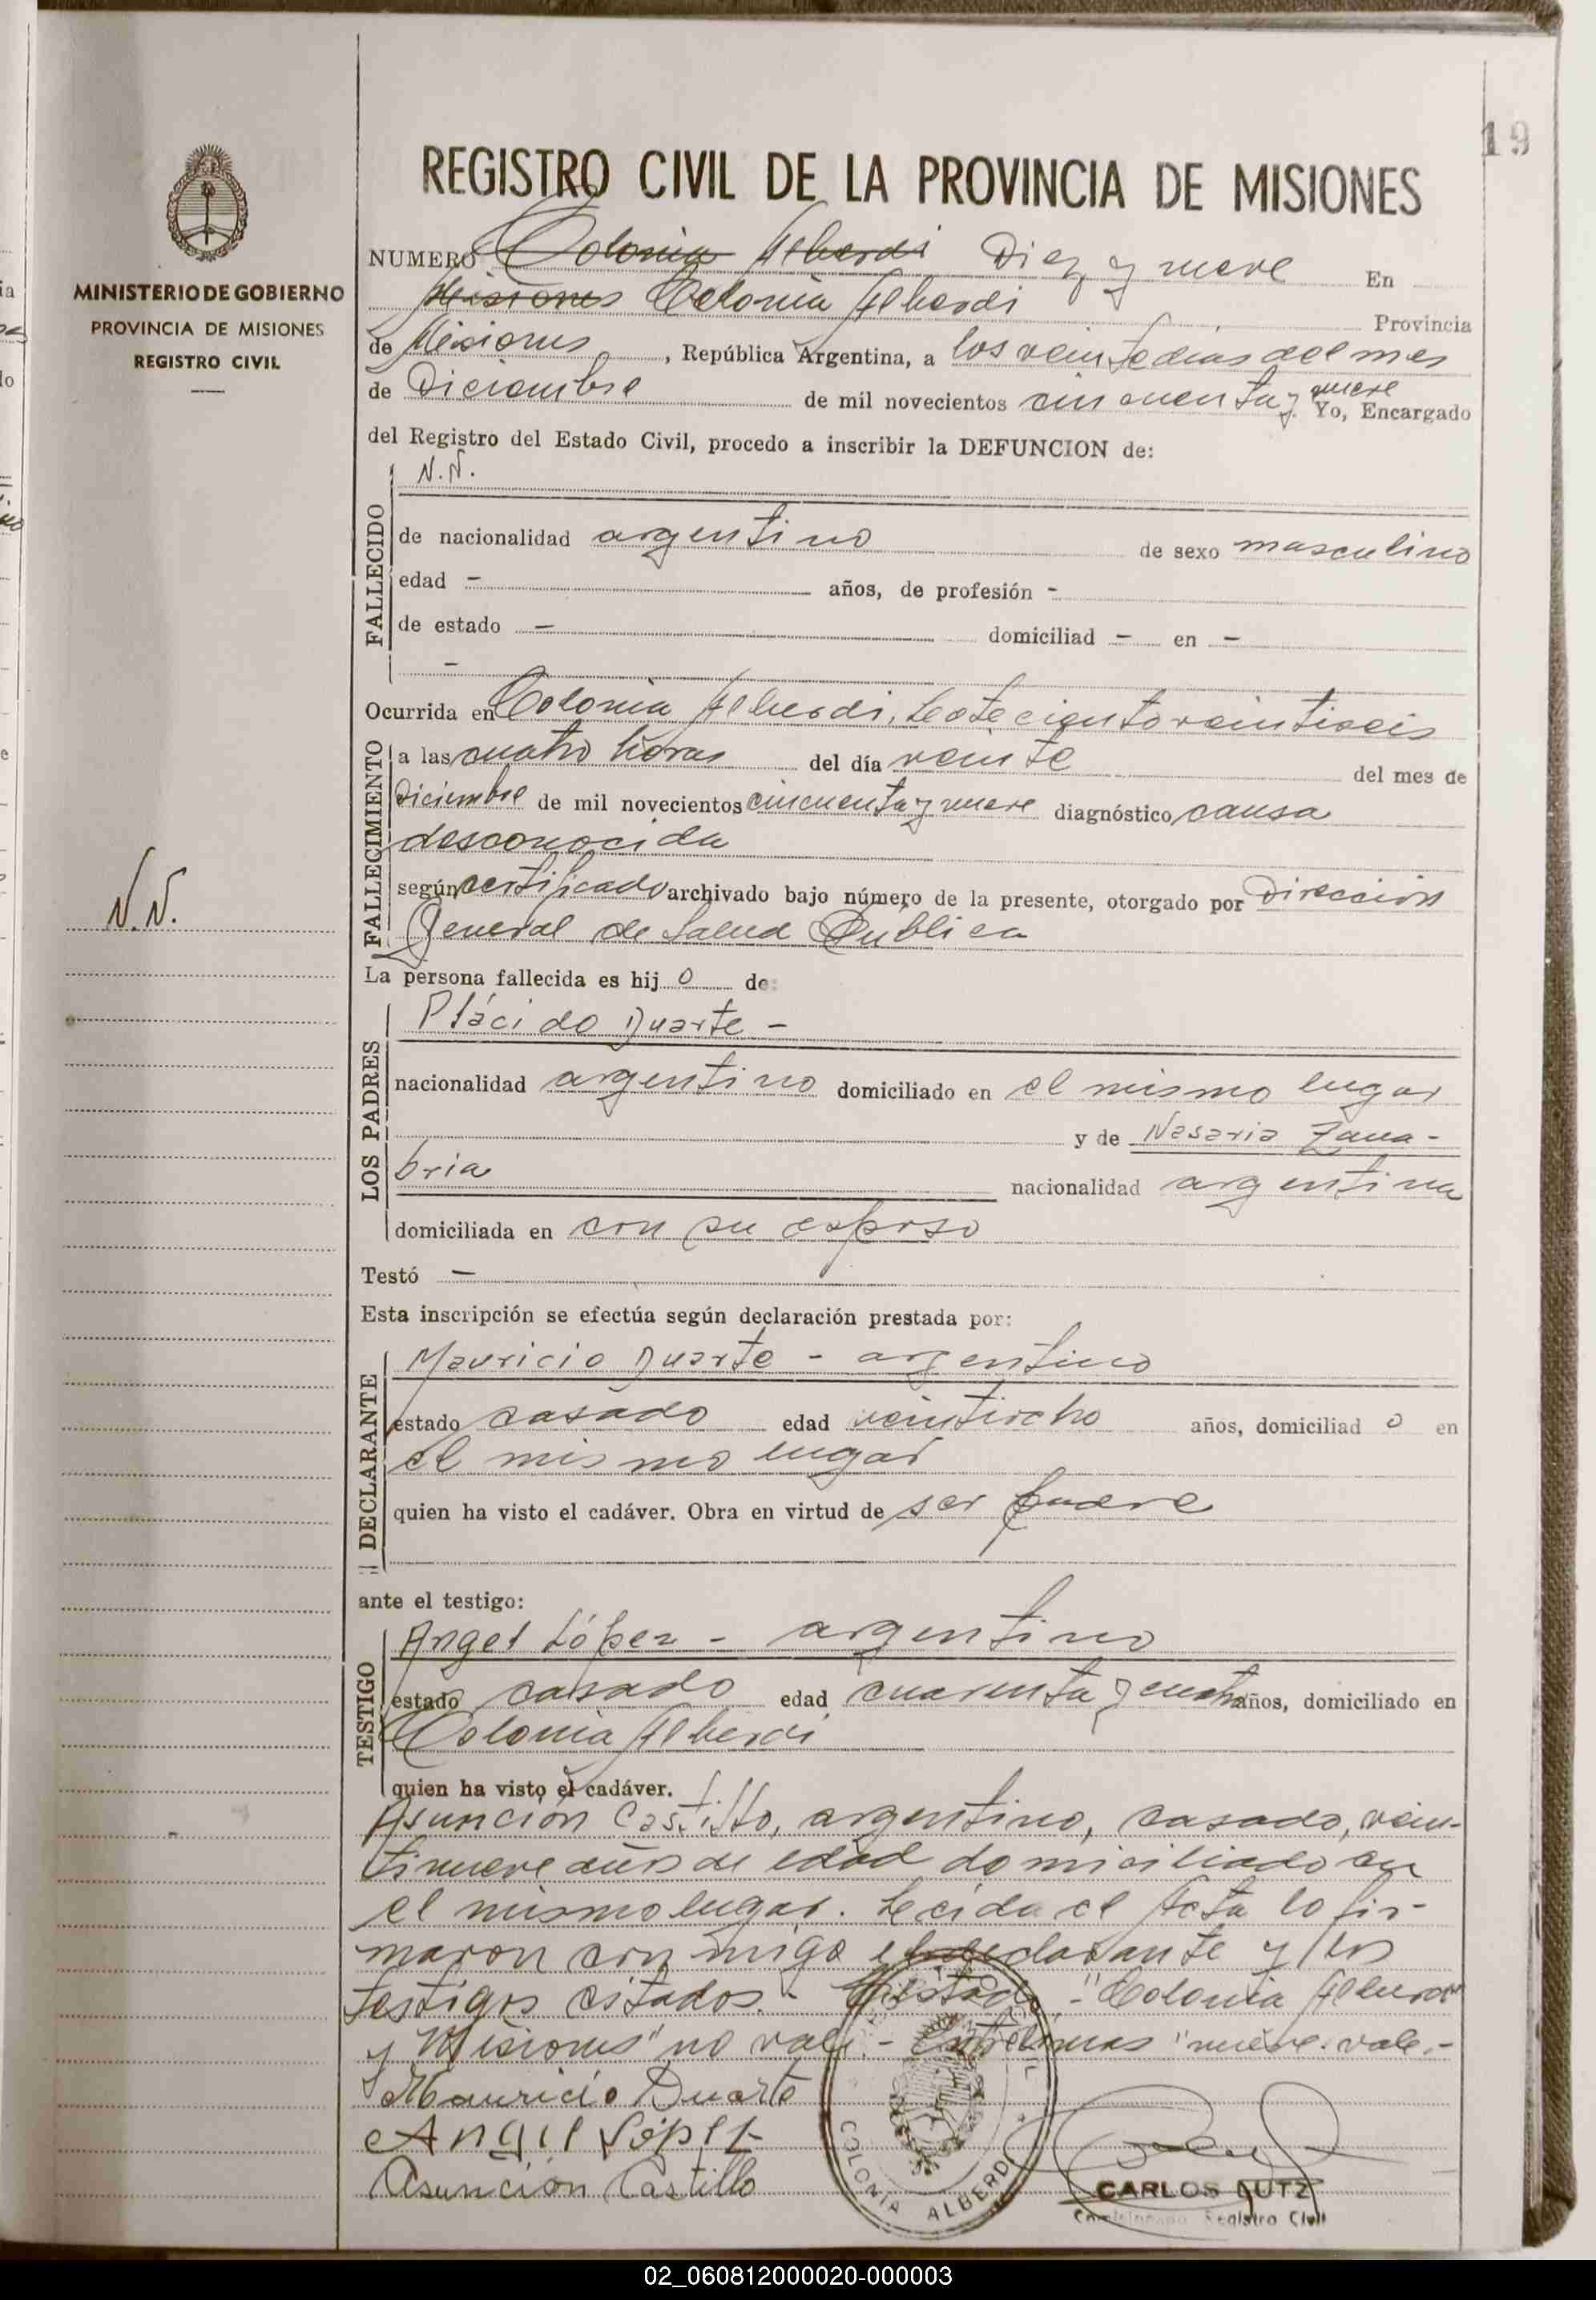 19
MINISTERIO DE GOBIERNO
PROVINCIA DE MISIONES
REGISTRO CIVIL
N.N.
REGISTRO CIVIL DE LA PROVINCIA DE MISIONES
NUMERO Colonia Alberdi Diez y nueve En
Misiones Colonia Alberdi Provincia
de Misiones, República Argentina, a los veinte dias del mes
de Diciembre de mil novecientos cincuenta y nueve Yo, Encargado
del Registro del Estado Civil, procedo a inscribir la DEFUNCION de:
FALLECIDO
N.N.
de nacionalidad argentino de sexo masculino
edad - años, de profesión -
de estado - domiciliad - en -
-
Ocurrida en Colonia Alberdi, Lote ciento veintiseis
FALLECIMIENTO
a las cuatro horas del día veinte del mes de
Diciembre de mil novecientos cincuenta y nueve diagnóstico causa
desconocida
según certificado archivado bajo número de la presente, otorgado por Dirección
General de Salud Publica
La persona fallecida es hij o de:
LOS PADRES
Plácido Duarte -
nacionalidad argentino domiciliado en el mismo lugar
y de Nasaria Zana-
bria nacionalidad argentina
domiciliada en con su esposo
Testó -
Esta inscripción se efectúa según declaración prestada por:
DECLARANTE
Mauricio Duarte - argentino
estado casado edad veintiocho años, domiciliad o en
el mismo lugar
quien ha visto el cadáver. Obra en virtud de ser padre
ante el testigo:
TESTIGO
Angel López - argentino
estado casado edad cuarenta y cuatro años, domiciliado en
Colonia Alberdi
quien ha visto el cadáver.
Asunción Castillo, argentino, casado, vein-
tinueve años de edad domiciliado en
el mismo lugar. Leida el Acta lo fir-
maron con migo el declarante y los
testigos citados.- Testado - "Colonia Alberdi
y Misiones" no vale.- Entrelineas "nueve. vale.-
Mauricio Duarte
Angel López
Asunción Castillo
COLONIA ALBERDI
CARLOS LUTZ
Registro Civil
02_060812000020-000003